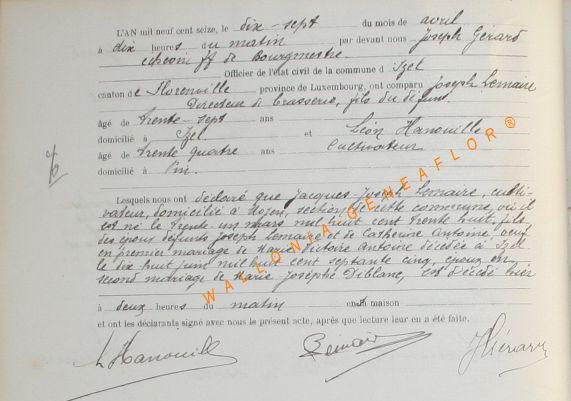 L'AN mil neuf cent seize, le dix-sept du mois de avril
à dix heures du matin par devant nous Joseph Gérard
échevin ff de Bourgmestre.
Officier de l'état civil de la commune d'Izel
canton de Florenville province de Luxembourg, ont comparu Joseph Lemaire
Directeur de brasserie, fils du défunt
âgé de trente-sept ans
domicilié à Izel et Léon Hanouille
âgé de trente quatre ans Cultivateur
domicilié à
Lesquels nous ont déclaré que Jacques-Joseph Lemaire, culti-
vateur, domicilié à Moyen, section de cette commune, où il
est né le trente un mars mil huit cent trente huit, fils
des époux défunts Joseph Lemaire et de Catherine Antoine veuf
en premier mariage de Marie Victoire Antoine décédée à Izel
le dix huit juin mil huit cent septante cinq, époux en
second mariage de Marie Josèphe Diblanc, est décédé hier
à deux heures du matin en maison
et ont les déclarants signé avec nous le présent acte, après que lecture leur en a été faite.
L Hanouille JGérard
WALLONIA GENEAFLOR ®